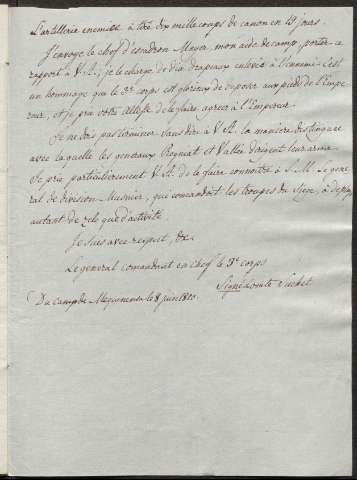 L'artillerie ennemie à tiré dix mille coups de canon en 15 jours.
J'envoye le chef d'escadron Mayer, mon aide de camp, porter ce
rapport à V. A.; je le charge de dix drapeaux enlevés à l'ennemi. C'est
un hommage que le 3e corps est glorieux de déposer aux pieds de l'Empe-
reur, et je prie votre Altesse de le faire agréer à l'Empereur.
Je ne dois pas terminer sans dire à V. A. la manière distinguée
avec laquelle les generaux Rogniat et Vallée dirigent leur arme.
Je prie particulièrement V. A. de le faire connaitre à S. M. Le gene-
ral de division Musnier, qui comandait les troupes du siege, à deployé
autant de zele que d'activité.
Je suis avec respect, &a.
Le general comandant en chef le 3e corps
Signé comte Suchet
Du camp de Mequinenza le 8 juin 1810.